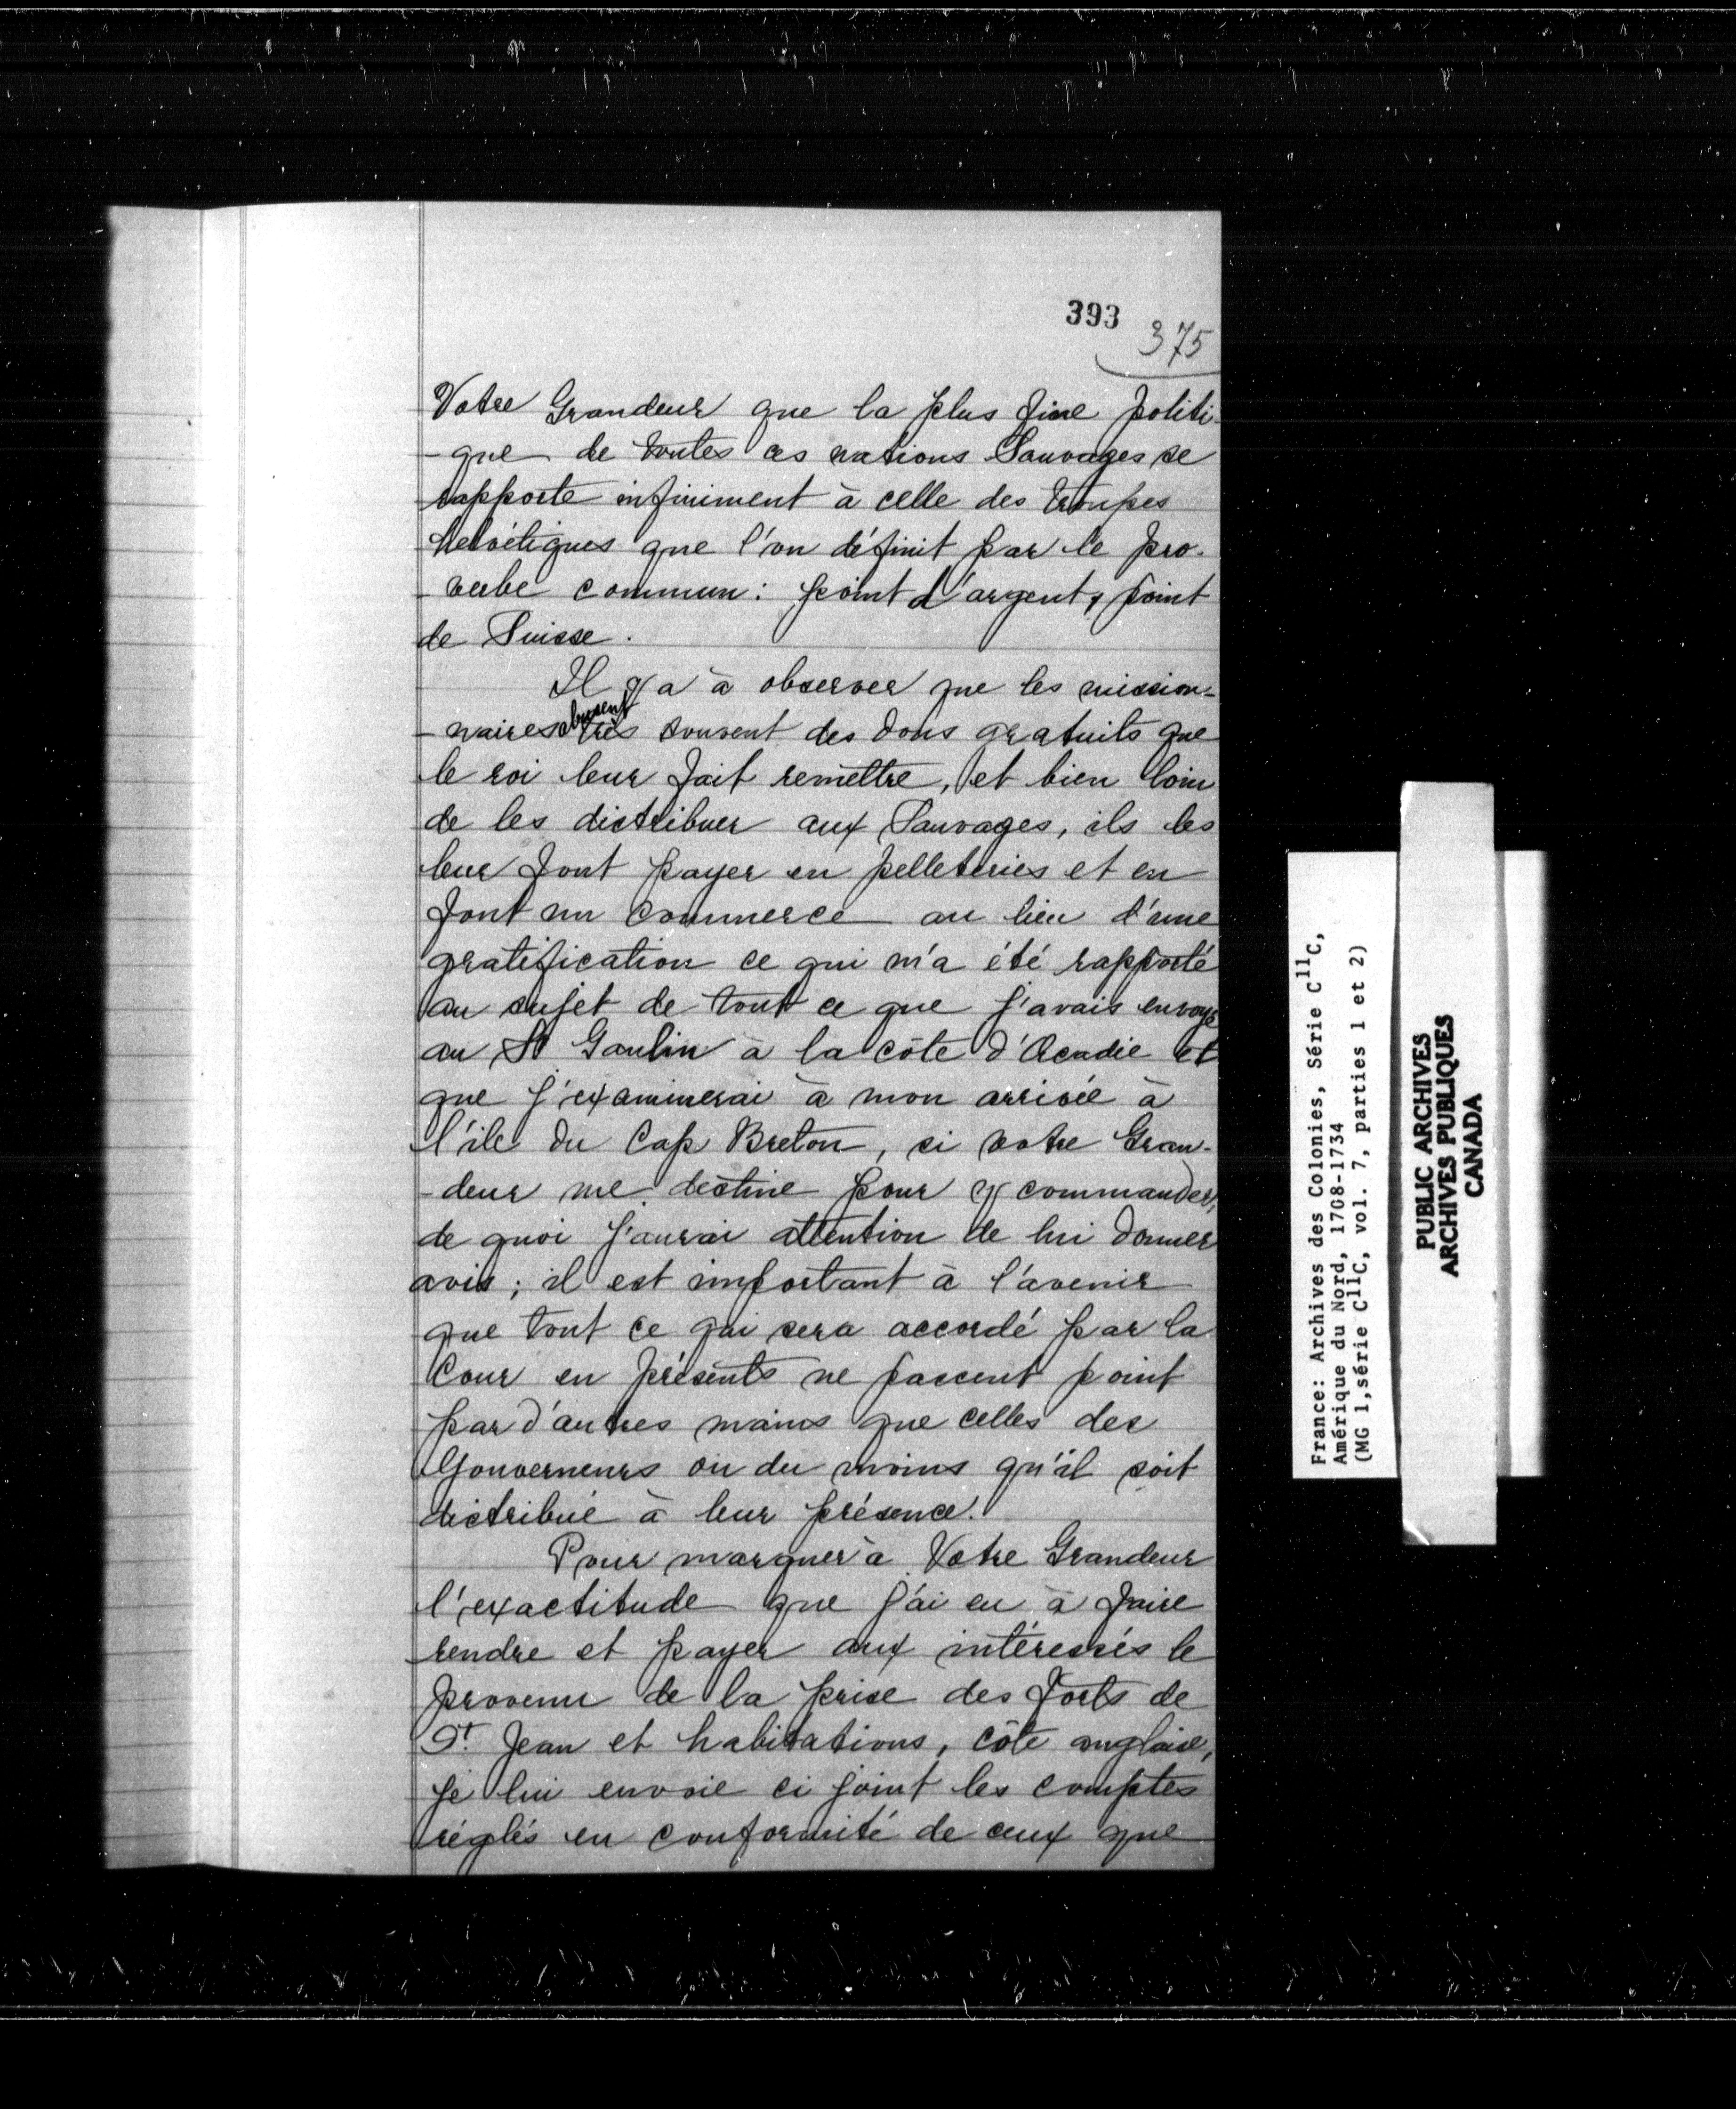 393
375
Votre Grandeur que la plus fine politi-
-que de toutes ces nations Sauvages se
rapporte infiniment à celle des troupes
helvétiques que l'on définit par le pro-
-verbe commun : point d'argent, point
de Suisse.
Il y a à observer que les mission-
-naires abusent très souvent des dons gratuits que
le roi leur fait remettre, et bien loin
de les distribuer aux Sauvages, ils les
leur font payer en pelleteries et en
font un commerce au lieu d'une
gratification ce qui m'a été rapporté
au sujet de tout ce que j'avais envoyé
au Sr Gaulin à la côte d'Acadie et
que j'examinerai à mon arrivée à
l'île du Cap Breton, si votre Gran-
-deur me destine pour y commander,
de quoi j'aurai attention de lui donner
avis ; il est important à l'avenir
que tout ce qui sera accordé par la
Cour en présents ne passent point
par d'autres mains que celles des
Gouverneurs ou du moins qu'il soit
distribué à leur présence.
Pour marquer à Votre Grandeur
l'exactitude que j'ai eu à faire
rendre et payer aux intéressés le
provenu de la prise des Forts de
St. Jean et habitations, côte anglaise,
je lui envoie ci joint les comptes
réglés en conformité de ceux que
France: Archives des Colonies, Série C11C,
Amérique du Nord, 1708-1734
(MG 1,série C11C, vol. 7, parties 1 et 2)
PUBLIC ARCHIVES
ARCHIVES PUBLIQUES
CANADA